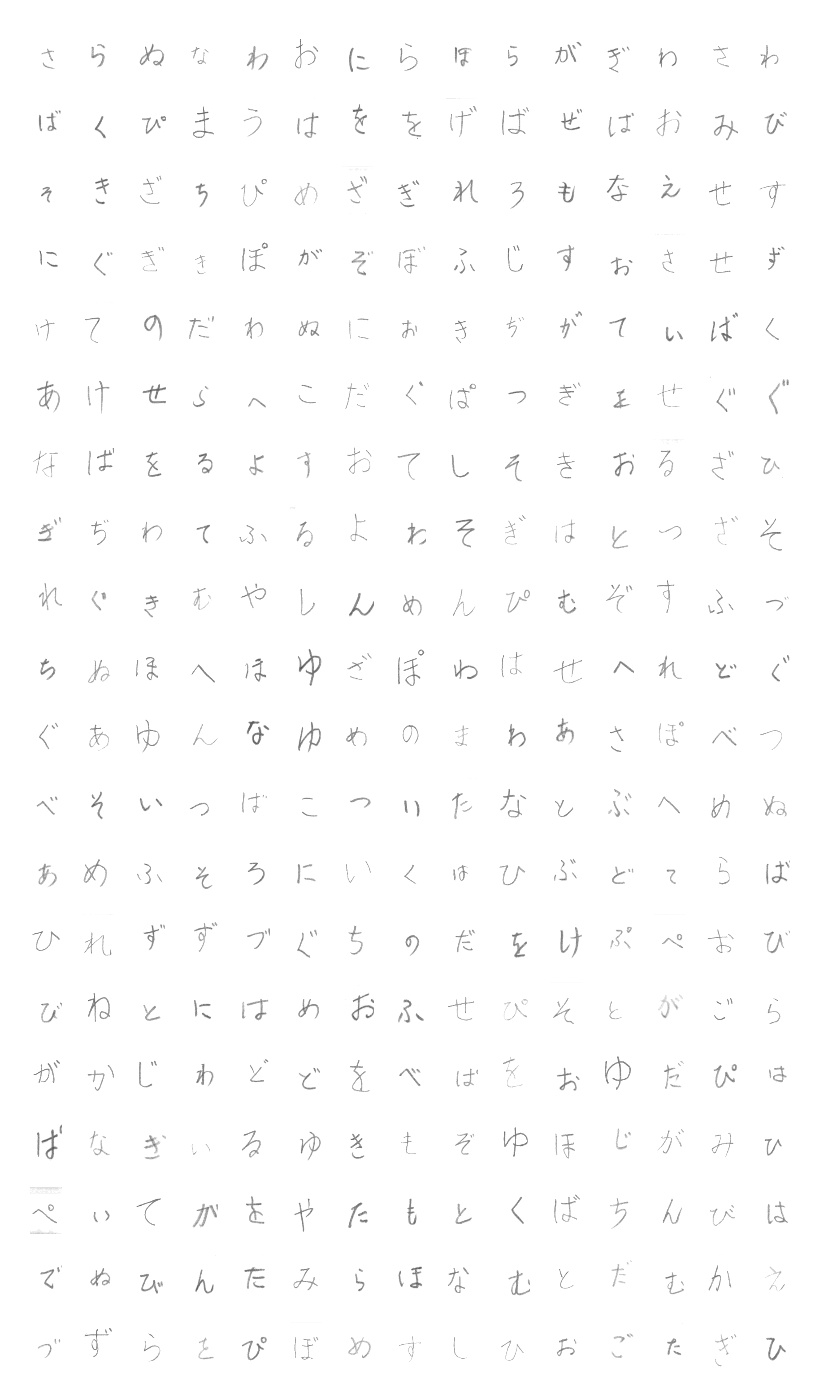 さらぬなわおにらほらがぎわさわ
ばくぴまうはををげばぜばおみび
そきざちぴめざぎれろもなえせす
にぐぎきぽがぞぼふじすおさせず
けてのだわぬにおきぢがてぃばく
あけせらへこだぐぱつぎをせぐぐ
なばをるよすおてしそきおるざひ
ぎぢわてふるよねそぎはとつざそ
れぐきむやしんめんぴむぞすふづ
ちぬほへほゆざぽわはせへれどぐ
ぐあゆんなゆめのまわあさぽべつ
べそいつばこついたなとぶへめぬ
あめふそろにいくはひぶどてらば
ひれずずづぐちのだをけぷぺおび
びねとにはめおふせぴそとがごら
がかじわどどをべばをおゆだぴは
ばなぎいるゆきもぞゆほじがみひ
ぺいてがをやたもとくばちんびは
でぬびんたみらほなむとだむかえ
づずらをぴぼめすしひおごたぎひ